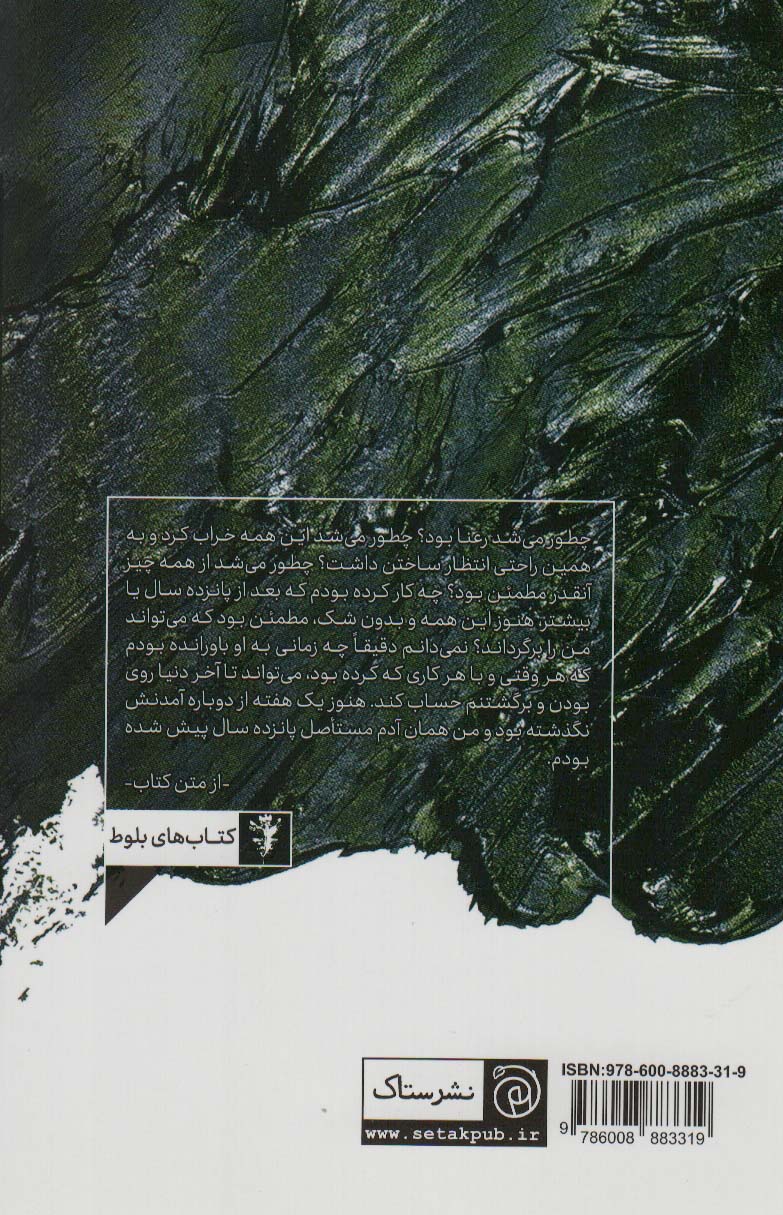 چطور می‌شد رعنا بود؟ چطور می‌شد این همه خراب کرد و به
همین راحتی انتظار ساختن داشت؟ چطور می‌شد از همه چیز
آنقدر مطمئن بود؟ چه کار کرده بودم که بعد از پانزده سال یا
بیشتر، هنوز این همه و بدون شک، مطمئن بود که می‌تواند
من را برگرداند؟ نمی‌دانم دقیقاً چه زمانی به او باورانده بودم
که هر وقتی و با هر کاری که کرده بود، می‌تواند تا آخر دنیا روی
بودن و برگشتنم حساب کند. هنوز یک هفته از دوباره آمدنش
نگذشته بود و من همان آدم مستأصل پانزده سال پیش شده
بودم.
-از متن کتاب-
کتاب‌های بلوط
نشر ستاک
www.setakpub.ir
ISBN:978-600-8883-31-9
9 786008 883319